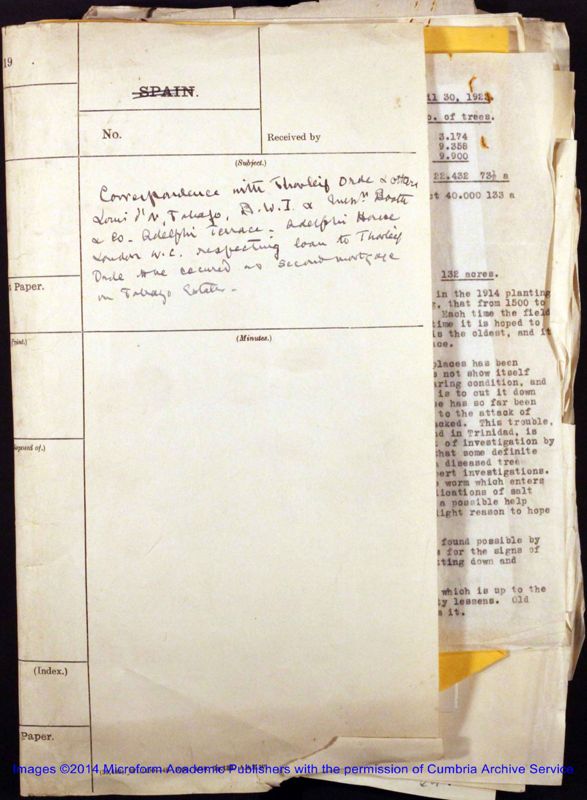 19
SPAIN.
No.
Received by
(Subject.)
Correspondence with Thorleif Orde & others
Louis d'Or, Tobago, B.W.I & Messrs Booth
& Co. Adelphi Terrace - Adelphi House
London W.C. respecting loan to Thorleif
Orde secured as second mortgage
on Tobago Estates -
Paper.
(Minutes.)
(Print.)
(Index.)
Paper.
il 30, 192
of trees.
3.174
9.358
9.900
22.432 73½ a
40.000 133 a
132 acres.
in the 1914 planting
, that from 1500 to
Each time the field
time it is hoped to
is the oldest, and it
ace.
places has been
s not show itself
aring condition, and
is to cut it down
e has so far been
to the attack of
acked. This trouble,
nd in Trinidad, is
of investigation by
that some definite
diseased tree
pert investigations.
worm which enters
lications of salt
a possible help
light reason to hope
found possible by
for the signs of
tting down and
which is up to the
ty lessens. Old
it.
Images ©2014 Microform Academic Publishers with the permission of Cumbria Archive Service